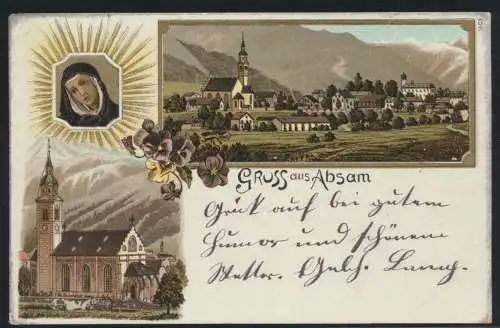 GRUSS aus Absam
Grüß auf bei gutem
Humor und schönem
Wetter.